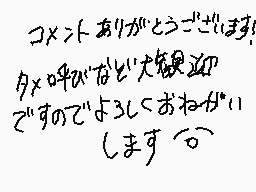 コメントありがとうございます!
タメ呼びなど大歓迎
ですのでよろしくおねがい
します